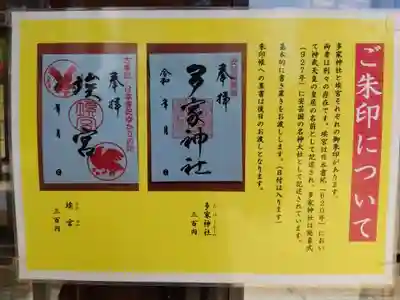 ご朱印について
多家神社と埃宮それぞれの御朱印があります。
両者は別々の存在です。埃宮は日本書紀「６２０年」におい
て神武天皇の皇居の名前として記述され、多家神社は延喜式
（９２７年）に安芸国の名神大社として記述されています。
基本的に書き置きをお渡しします。（日付は入ります）
朱印帳への墨書は後日のお渡しとなります。
奉拝
多家神社
令和 年 月
多家神社
三百円
奉拝
埃宮
年 月 日
埃宮
三百円